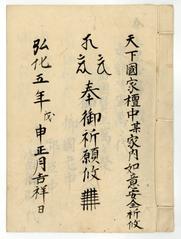 天下國家檀中某家內如意安全祈攸
奉御祈願攸
弘化五年戊申正月吉祥日